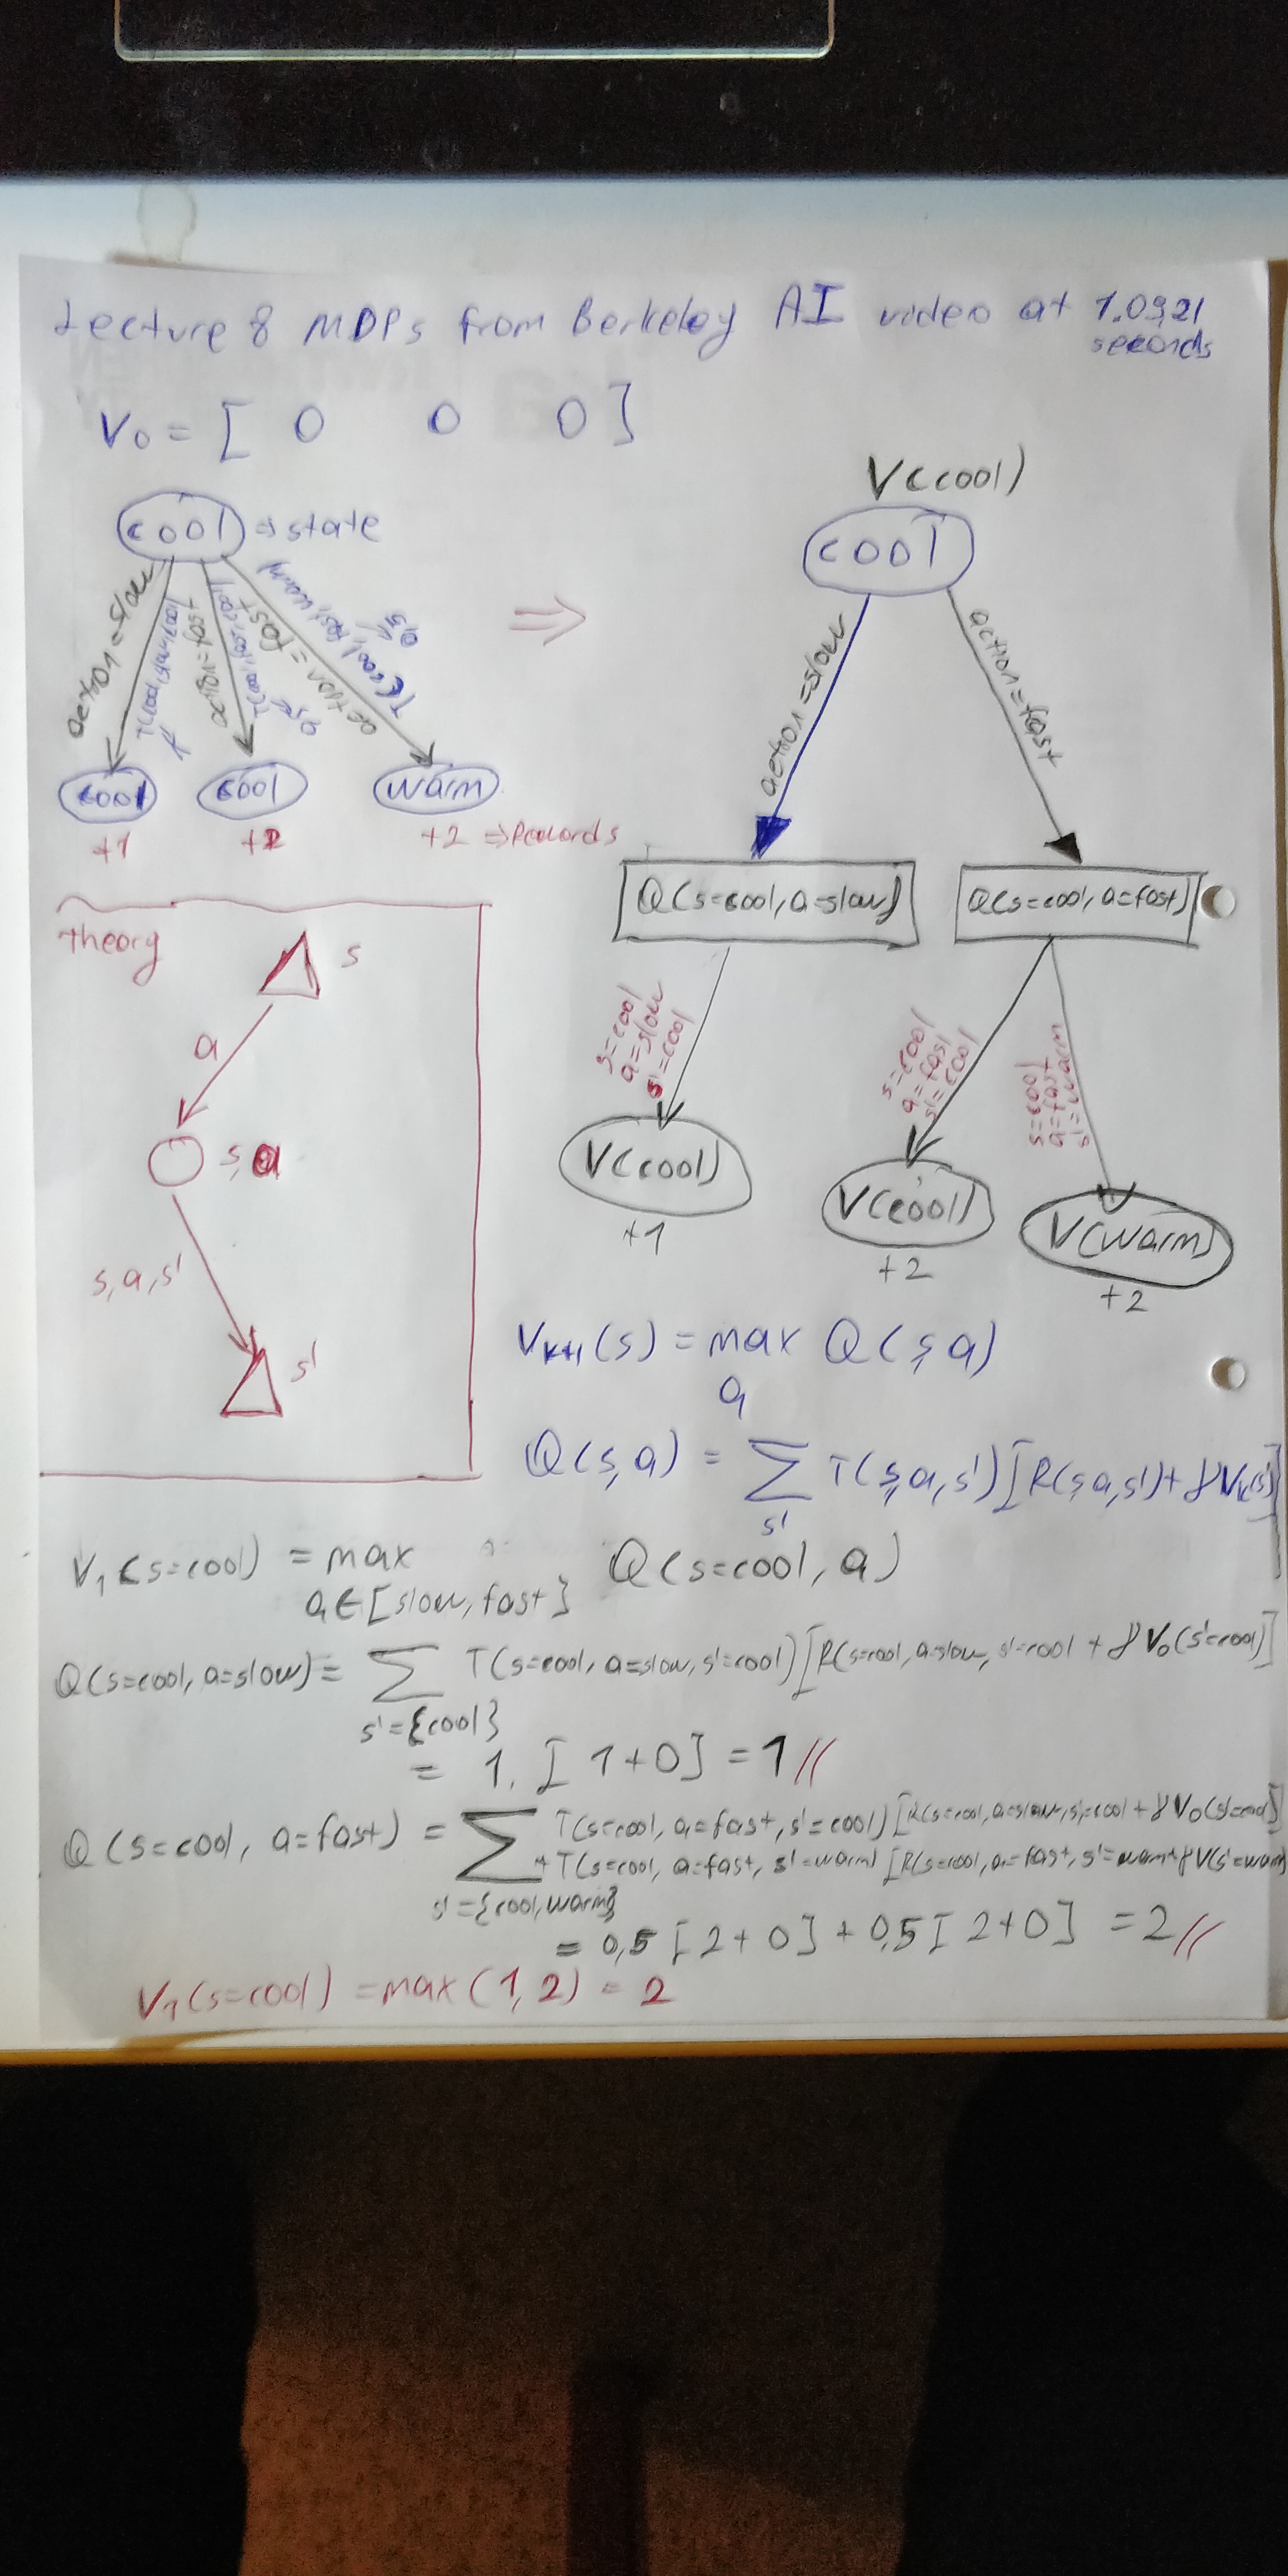 Lecture 8 MDPs from Berkeley AI video at 1.09,21
seconds
V0 = [ 0 0 0 ]
cool => state
action=slow
T(cool,slow,cool)
1
action=fast
T(cool,fast,cool)
0,5
action=fast
T(cool,fast,warm)
0,5
cool cool warm
+1 +2 +2 => Rewards
V(cool)
cool
action=slow
action=fast
Q(s=cool, a=slow) Q(s=cool, a=fast)
s=cool
a=slow
s'=cool
s=cool
a=fast
s'=cool
s=cool
a=fast
s'=warm
V(cool)
+1
V(cool)
+2
V(warm)
+2
Theory
s
a
s,a
s,a,s'
s'
Vk+1(s) = max Q(s,a)
a
Q(s,a) = ∑ T(s,a,s') [R(s,a,s') + γVk(s')]
s'
V1(s=cool) = max Q(s=cool, a)
a∈[slow, fast}
Q(s=cool, a=slow) = ∑ T(s=cool, a=slow, s'=cool) [R(s=cool, a=slow, s'=cool + γV0(s'=cool)]
s'={cool}
= 1. [ 1+0] = 1//
Q(s=cool, a=fast) = ∑ T(s=cool, a=fast, s'=cool) [R(s=cool, a=slow, s'=cool + γV0(s'=cool)]
+ T(s=cool, a=fast, s'=warm) [R(s=cool, a=fast, s'=warm + γV(s'=warm
s'={cool,warm}
= 0,5 [2+0] + 0,5 [2+0] = 2//
V1(s=cool) = max(1,2) = 2